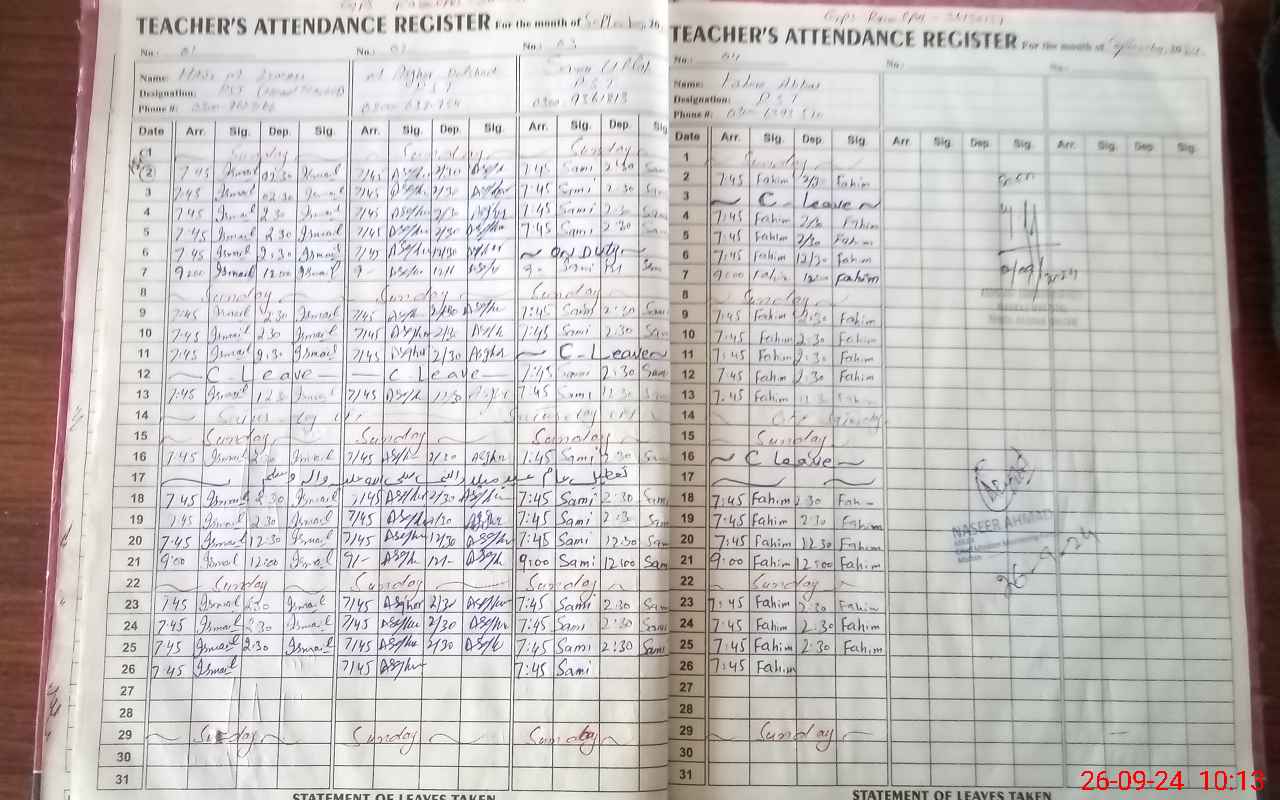 TEACHER'S ATTENDANCE REGISTER For the month of September, 20
No.: 01 No.: 02 No.: 03
Name:
Designation: PST PST
Phone #:
Date Arr. Sig. Dep. Sig. Arr. Sig. Dep. Sig. Arr. Sig. Dep. Sig
01 Sunday Sunday Sunday
2 7:45 Ismail 02:30 Ismail 7/45 Asghar 2/30 Asghar 7:45 Sami 2:30 Sam
3 7:45 Ismail 02:30 Ismail 7/45 Asghar 2/30 Asghar 7:45 Sami 2:30 Sam
4 7:45 Ismail 2:30 Ismail 7/45 Asghar 2/30 Asghar 7:45 Sami 2:30 Sam
5 7:45 Ismail 2:30 Ismail 7/45 Asghar 2/30 Asghar 7:45 Sami 2:30 Sam
6 7:45 Ismail Ismail 7/45 Asghar 12/30 Asghar ON DUTY
7 9:00 Ismail 12:00 Ismail 9- Asghar 12/- Asghar 9- Sami Sam
8 Sunday Sunday Sunday
9 7:45 Ismail 2:30 Ismail 7/45 Asghar 2/30 Asghar 7:45 Sami 2:30 Sam
10 7:45 Ismail 2:30 Ismail 7/45 Asghar 2/30 Asghar 7:45 Sami 2:30 Sam
11 7:45 Ismail 2:30 Ismail 7/45 Asghar 2/30 Asghar C-Leave
12 C Leave C Leave 7:45 Sami 2:30 Sam
13 7:45 Ismail 12:30 Ismail 7/45 Asghar 12/30 Asghar 7:45 Sami 12:30 Sam
14
15 Sunday Sunday Sunday
16 7:45 Ismail 2:30 Ismail 7/45 Asghar 2/30 Asghar 7:45 Sami 2:30 Sam
17 تعطیل عام عید میلاد النبی صلی اللہ علیہ والہ وسلم
18 7:45 Ismail 2:30 Ismail 7/45 Asghar 2/30 Asghar 7:45 Sami 2:30 Sam
19 7:45 Ismail 2:30 Ismail 7/45 Asghar 2/30 Asghar 7:45 Sami 2:30 Sam
20 7:45 Ismail 12:30 Ismail 7/45 Asghar 12/30 Asghar 7:45 Sami 12:30 Sam
21 9:00 Ismail 12:00 Ismail 9/- Asghar 12/- Asghar 9:00 Sami 12:00 Sam
22 Sunday Sunday Sunday
23 7:45 Ismail 2:30 Ismail 7/45 Asghar 2/30 Asghar 7:45 Sami 2:30 Sam
24 7:45 Ismail 2:30 Ismail 7/45 Asghar 2/30 Asghar 7:45 Sami 2:30 Sam
25 7:45 Ismail 2:30 Ismail 7/45 Asghar 2/30 Asghar 7:45 Sami 2:30 Sam
26 7:45 Ismail 7/45 Asghar 7:45 Sami
27
28
29 Sunday Sunday Sunday
30
31
STATEMENT OF LEAVES TAKEN
TEACHER'S ATTENDANCE REGISTER For the month of September, 20
No.: 04 No.: No.:
Name: Fahim Abbas
Designation: PST
Phone #:
Date Arr. Sig. Dep. Sig. Arr. Sig. Dep. Sig. Arr. Sig. Dep. Sig.
1 Sunday
2 7:45 Fahim 2/30 Fahim
3 C-Leave
4 7:45 Fahim 2/30 Fahim
5 7:45 Fahim 2/30 Fahim
6 7:45 Fahim 12/30 Fahim
7 9:00 Fahim 12:00 Fahim
8 Sunday
9 7:45 Fahim 2:30 Fahim
10 7:45 Fahim 2:30 Fahim
11 7:45 Fahim 2:30 Fahim
12 7:45 Fahim 2:30 Fahim
13 7:45 Fahim Fahim
14
15 Sunday
16 C Leave
17
18 7:45 Fahim 2:30 Fahim
19 7:45 Fahim 2:30 Fahim
20 7:45 Fahim 12:30 Fahim
21 9:00 Fahim 12:00 Fahim
22 Sunday
23 7:45 Fahim 2:30 Fahim
24 7:45 Fahim 2:30 Fahim
25 7:45 Fahim 2:30 Fahim
26 7:45 Fahim
27
28
29 Sunday
30
31
NASEER AHMAD
26-9-24
STATEMENT OF LEAVES TAKEN
26-09-24 10:13